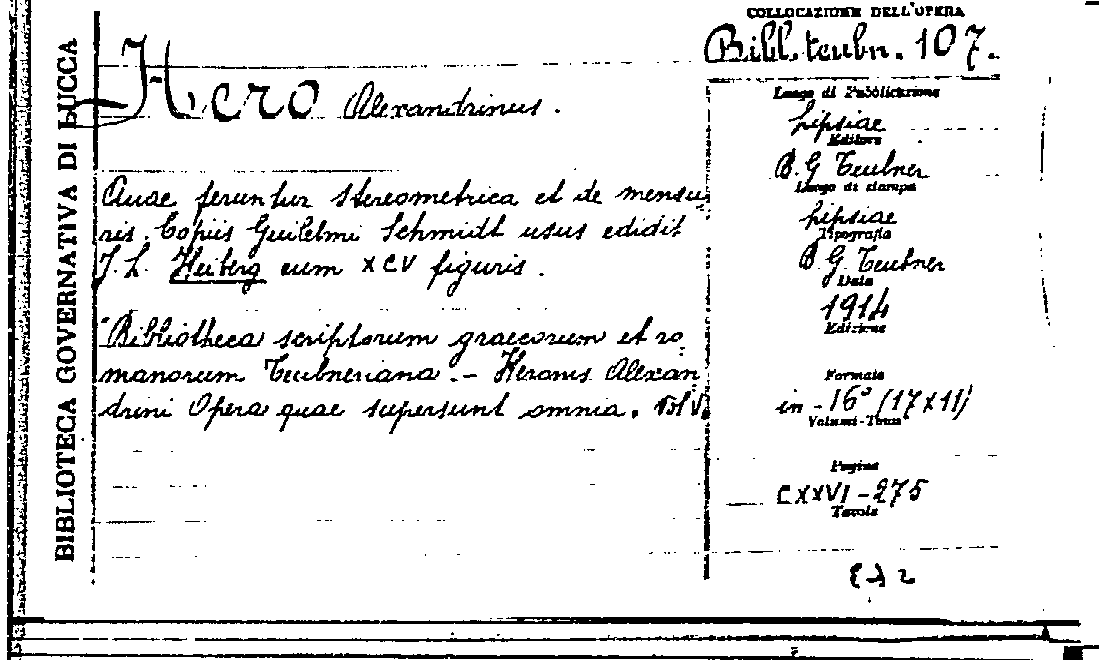 BIBLIOTECA GOVERNATIVA DI LUCCA
COLLOCAZIONE DELL'OPERA
Bibl. teubn. 107.
Hero Alexandrinus.
Quae feruntur stereometrica et de mensu
ris. Copiis Guilelmi Schmidt usus edidit
J. L. Heiberg cum XCV figuris.
"Bibliotheca scriptorum graecorum et ro
manorum Teubneriana. - Heronis Alexan
drini Opera quae supersunt omnia. Vol V.
Luogo di Pubblicazione
Lipsiae
Editore
B. G Teubner
Luogo di stampa
Lipsiae
Tipografia
B. G. Teubner
Data
1914
Edizione
Formato
in - 16° (17x11)
Volumi-Tomi
Pagine
CXXVI - 275
Tavole